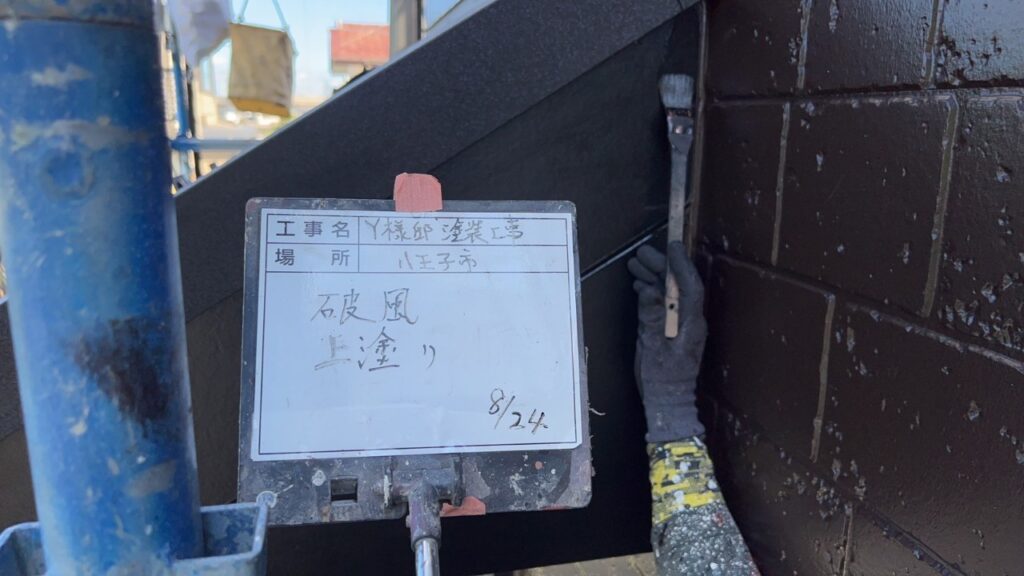 工事名 Y様邸 塗装工事
場所 八王子市
破風
上塗り
8/24.